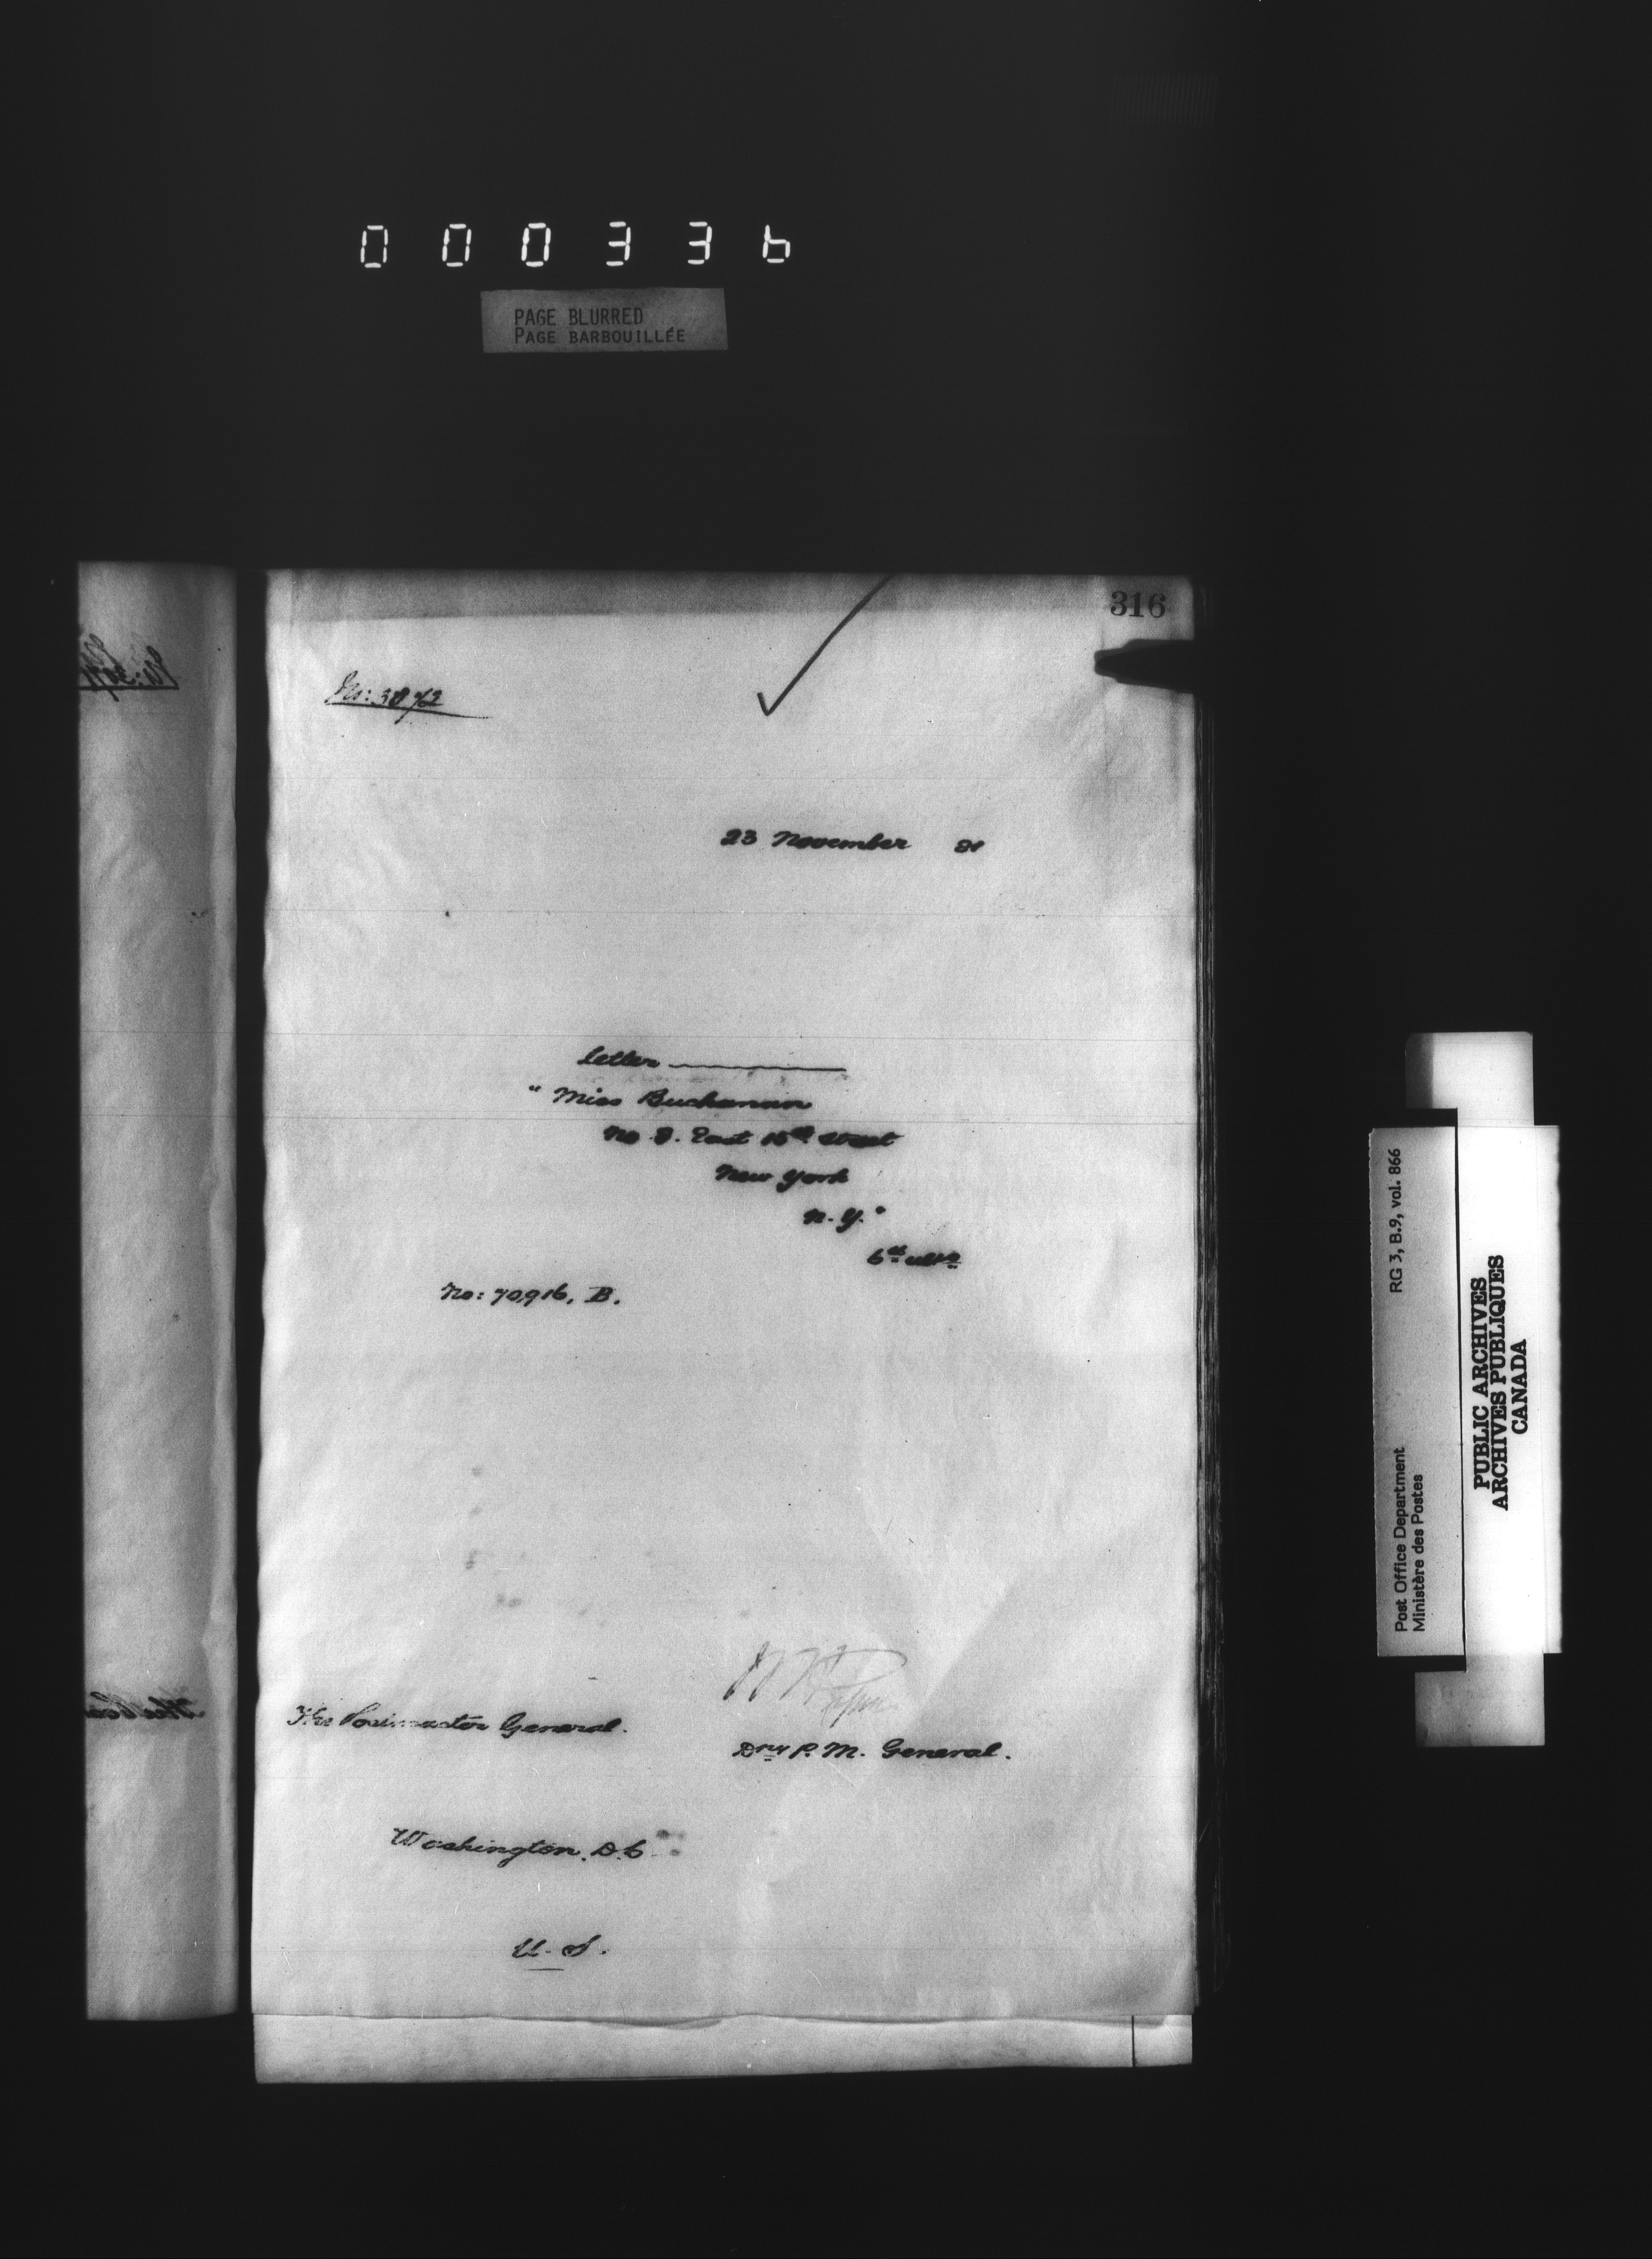 000336
PAGE BLURRED
PAGE BARBOUILLÉE
316
No: 3872
23 November 91
Letter
"Miss Buchanan
No 8. East 15th Street
New York
N.Y."
6th ulto
No: 70,916, B.
The Postmaster General.
Dpy P. M. General.
Washington, D.C
U.S.
RG 3, B.9, vol. 866
Post Office Department
Ministère des Postes
PUBLIC ARCHIVES
ARCHIVES PUBLIQUES
CANADA